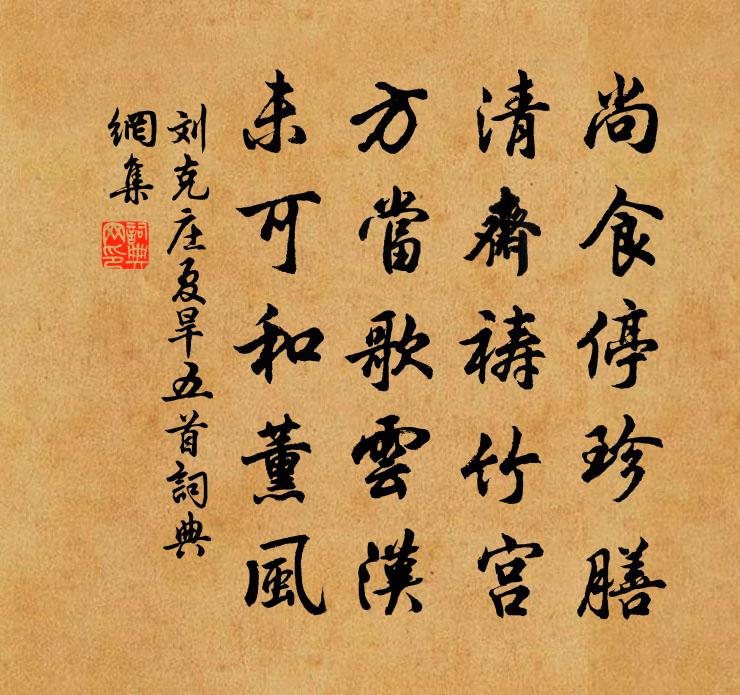 尚食停珍膳
清齋禱竹宫
方當歌雲漢
未可和薰風
刘克庄夏旱五首詞典
網集
詞典網印